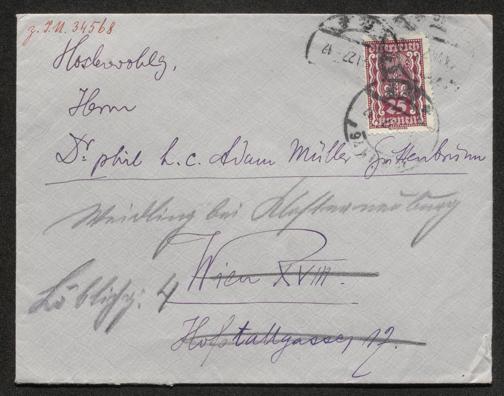 z. I.N. 34568
Hochwohlg.
Herrn
Dr phil h.c. Adam Müller Guttenbrunn
Weidling bei Klosterneuburg
Wien XVIII.
Löblichg: 4
Hofstallgasse 12.
25